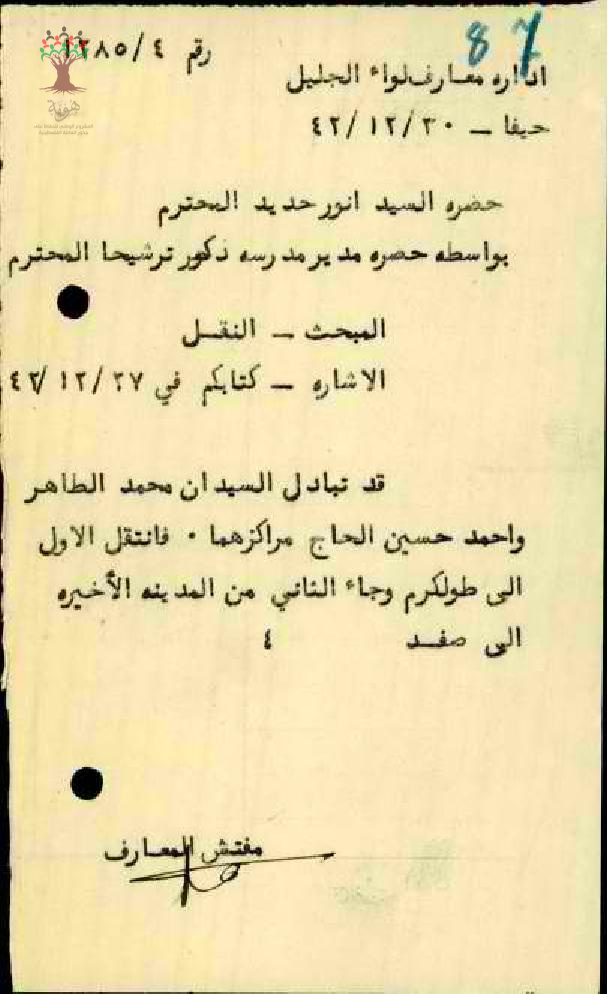 87
رقم ١٢٨٥/٤
اداره معارف لواء الجليل
حيفا – ٤٢/١٢/٣٠
حضره السيد انور حديد المحترم
بواسطه حضره مدير مدرسه ذكور ترشيحا المحترم
المبحث – النقل
الاشاره – كتابكم في ٤٢/١٢/٢٧
قد تبادل السيدان محمد الطاهر
واحمد حسين الحاج مراكزهما ٠ فانتقل الاول
الى طولكرم وجاء الثاني من المدينه الأخيره
الى صفد ٤
مفتش المعارف
هوية